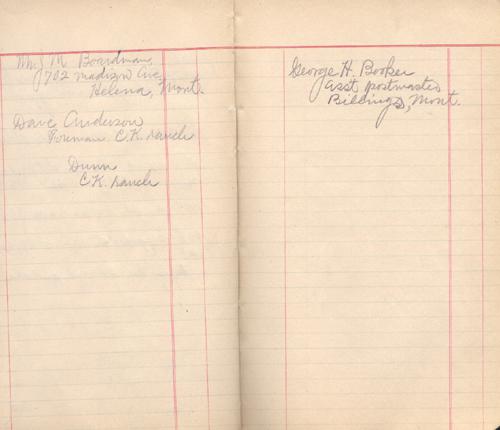 Wm J M Boardman
702 Madison Ave,
Helena, Mont.
Dave Anderson
Foreman C.K. ranch
Dunn
C.K. ranch
George H. Booker
Asst postmaster
Billings, Mont.